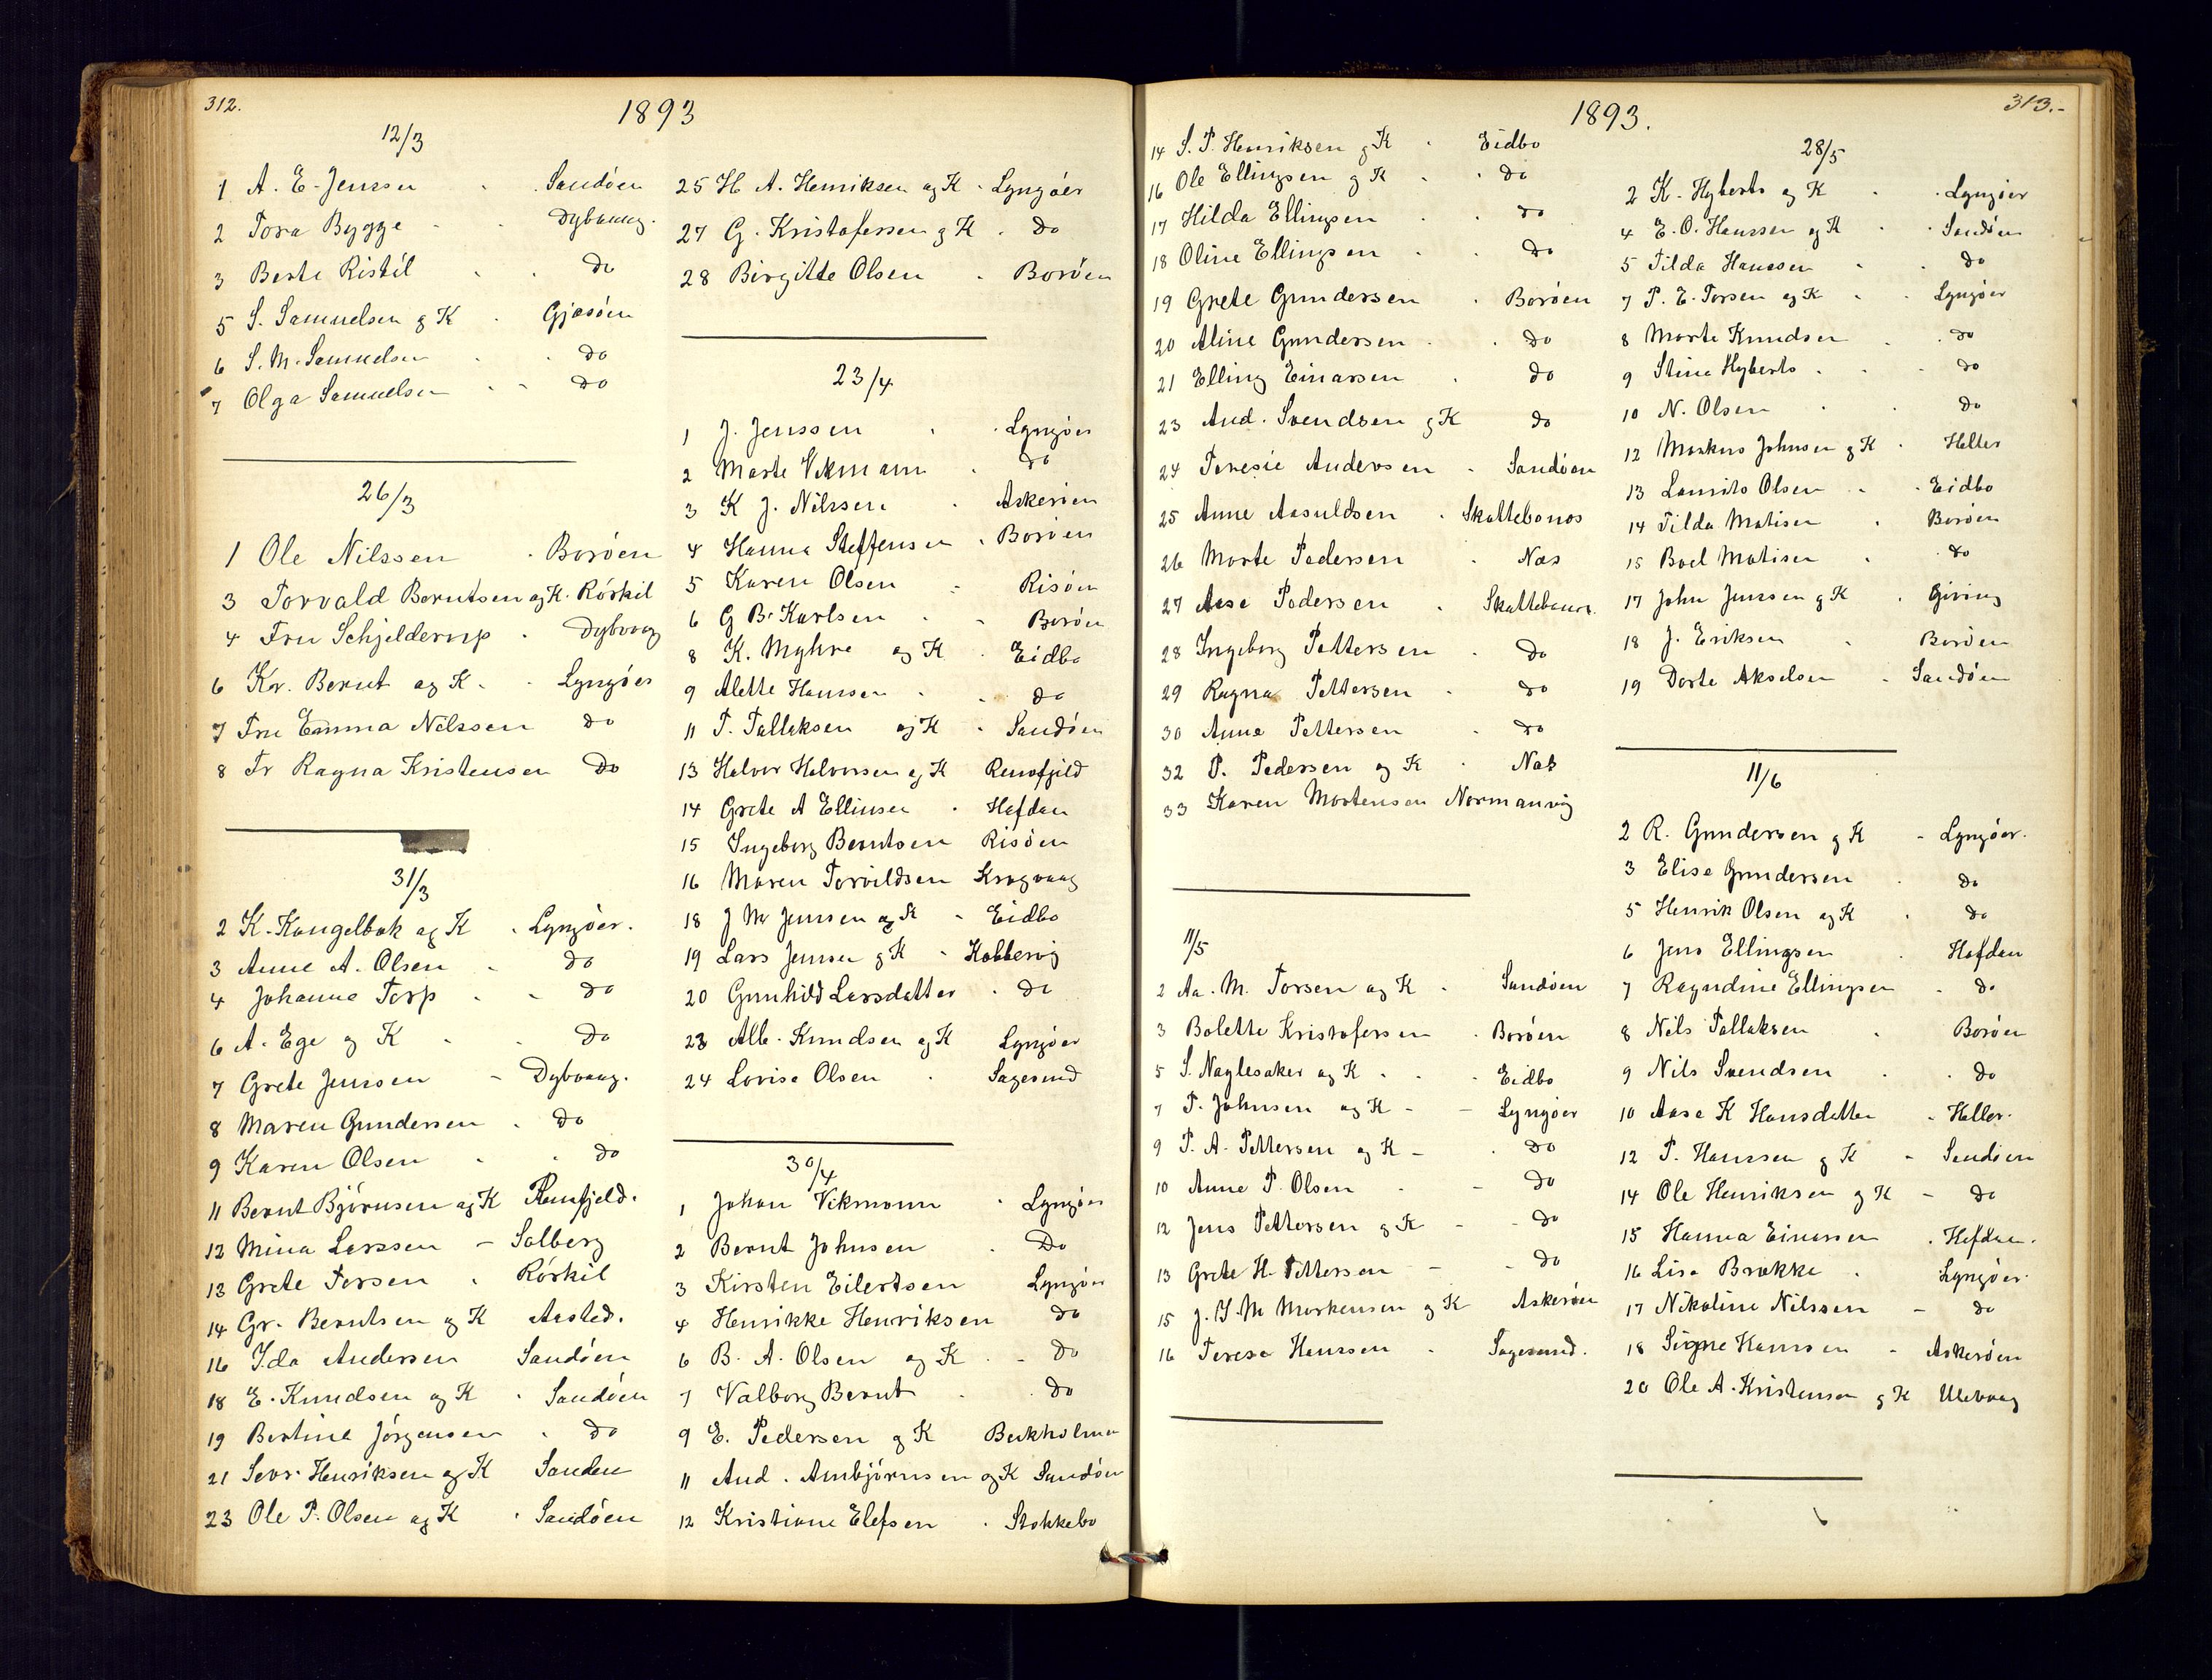 312.
1893
12/3
1 A. E. Jenssen . . Sandöen
2 Tora Bygge - . Dybvaag.
3 Berte Ristil . . do
5 S. Samuelsen og K . Gjæsöen
6 S. M. Samuelsen . . do
7 Olga Samuelsen . - do
26/3
1 Ole Nilssen . Boröen
3 Torvald Berntsen og K. Röskil
4 Fru Schjelderup . Dybvaag
6 Kr. Bernt og K. . Lyngöer
7 Fru Emma Nilssen do
8 Fr Ragna Kristensen do
31/3
2 K. Kongelbak og K . Lyngöer.
3 Anne A. Olsen - do
4 Johanne Torp . - do
6 A. Ege og K . . do
7 Grete Jenssen - Dybvaag.
8 Maren Gundersen . do
9 Karen Olsen . . do
11 Bernt Björnsen og K Remfjeld.
12 Mina Larssen - Solberg
13 Grete Torsen . Röskil
14 Gr. Berntsen og K Aasted.
16 Ida Andersen Sandöen
18 E. Knudsen og K . Sandöen
19 Bertine Jörgensen . do
21 Sevr. Henriksen og K Sanden
23 Ole P. Olsen og K . Sandöen
25 H A. Henriksen og K . Lyngöer
27 G. Kristofersen og K . do
28 Birgitte Olsen . Boröen
23/4
1 J. Jenssen . . Lyngöer
2 Marte Vikmann . do
3 K J. Nilssen . Askeröen
4 Hanna Steffensen . Boröen
5 Karen Olsen - Risöen
6 G B. Karlsen . - Boröen
8 K. Myhre og K . Eidbo
9 Alette Hanssen . . do
11 T. Tallaksen og K . Sandöen
13 Halvor Halvorsen og K Remfjeld
14 Grete A Ellinsen . Hafdan
15 Ingeborg Berntsen Risöen
16 Maren Torvildsen Kragvaag
18 J Mr Jenssen og K - Eidbo
19 Lars Jensen og K - Kabbervig
20 Gunhild Larsdatter . do
23 Alb. Knudsen og K Lyngöer
24 Lovise Olsen . Sagesund
30/4
1 Johan Vikmann . Lyngöer
2 Bernt Johnsen . Do
3 Kirsten Eilertsen Lyngöer
4 Henrikke Henriksen do
6 B. A. Olsen og K . - do
7 Valborg Bernt . . do
9 E. Pedersen og K Berkholmen
11 And. Ambjörnsen og K Sandöen
12 Kristiane Elefsen . Stokkebo
1893.
313.-
14 S. P. Henriksen og K . Eidbo
16 Ole Ellingsen og K . . do
17 Hilda Ellingsen . do
18 Oline Ellingsen . . do
19 Grete Gundersen . Boröen
20 Aline Gundersen . . do
21 Elling Einarsen . do
23 And. Svendsen og K do
24 Teresie Andersen . Sandöen
25 Anne Aasuldsen . Skattebonæs
26 Morte Pedersen . Næs
27 Aase Pedersen . Skattebonæs.
28 Ingeborg Pettersen . do
29 Ragna Pettersen . do
30 Anne Pettersen . do
32 P. Pedersen og K . Næs
33 Karen Mortensen Normanvig
11/5
2 Aa. M. Torsen og K . Sandöen
3 Bolette Kristofersen . Boröen
5 S. Naglesaker og K . . Eidbo
7 T. Johnsen og K - - Lyngöer
9 P. A. Pettersen og K - . do
10 Anne P. Olsen . - do
12 Jens Pettersen og K - - do
13 Grete H. Pettersen - - do
15 J. S. M Markensen og K Askeröen
16 Terese Hanssen . Sagesund.
28/5
2 K. Hyberts og K . . Lyngöer
4 E. O. Hanssen og K . . Sandöen
5 Tilda Hanssen . . do
7 P. E. Torsen og K . . Lyngöer
8 Marte Knudsen . . do
9 Stine Hyberts . . do
10 N. Olsen . . do
12 Markus Johnsen og K . Holler
13 Laurits Olsen . . Eidbo
14 Tilda Matisen . Boröen
15 Boel Matisen . do
17 John Jenssen og K . Giving
18 J. Eriksen . Boröen
19 Dorte Akselsen . Sandöen
11/6
2 R. Gundersen og K - Lyngöer.
3 Elise Gundersen . do
5 Henrik Olsen og K . do
6 Jens Ellingsen . Hafdan
7 Ragndine Ellingsen . do
8 Nils Tallaksen . Boröen
9 Nils Svendsen . . do
10 Aase K Hansdatter . Holler.
12 P. Hanssen og K - Sandöen
14 Ole Henriksen og K - do
15 Hanna Einarsen . Hafdan.
16 Lise Brække . Lyngöer.
17 Nikoline Nilssen - do
18 Signe Hanssen - Askeröen
20 Ole A. Kristensen og K Ulevaag